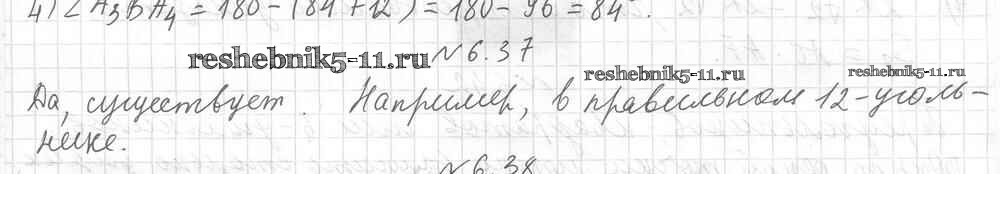 4) ∠A₃BA₄ = 180 - (84 + 12) = 180 - 96 = 84°.
№ 6.37
reshebnik5-11.ru
reshebnik5-11.ru
reshebnik5-11.ru
Да, существует. Например, в правильном 12-уголь-
нике.
№ 6.38